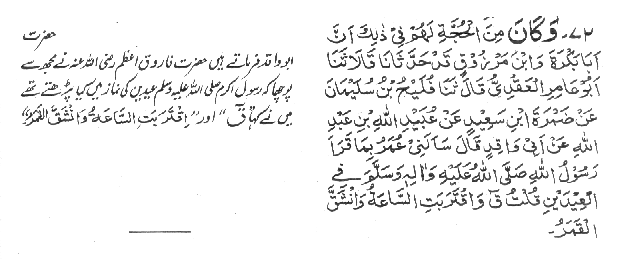 ۷۲- وَكَانَ مِنَ الْحُجَّةِ لَهُمْ فِيْ ذٰلِكَ اَنَّ
اَبَابَكْرَةَ وَابْنَ مَرْزُوْقٍ قَدْ حَدَّثَانَا قَالَا ثَنَا
اَبُوْعَامِرِ الْعَقَدِيُّ قَالَ ثَنَا فُلَيْحُ بْنُ سُلَيْمَانَ
عَنْ ضَمْرَةَ ابْنِ سَعِيْدٍ عَنْ عُبَيْدِ اللهِ بْنِ عَبْدِ
اللهِ عَنْ اَبِيْ وَاقِدٍ قَالَ سَاَلَنِيْ عُمَرُ بِمَا قَرَاَ
رَسُوْلُ اللهِ صَلَّى اللهُ عَلَيْهِ وَاٰلِهٖ وَسَلَّمَ فِي
الْعِيْدَيْنِ قُلْتُ قٓ وَاقْتَرَبَتِ السَّاعَةُ وَانْشَقَّ
الْقَمَرُ۔
حضرت
ابو واقد فرماتے ہیں حضرت فاروق اعظم رضی اللہ عنہ نے مجھ سے
پوچھا کہ رسول اکرم صلی اللہ علیہ وسلم عیدین کی نماز میں کیا پڑھتے تھے
میں نے کہا "قٓ" اور "اِقْتَرَبَتِ السَّاعَةُ وَانْشَقَّ الْقَمَرُ"